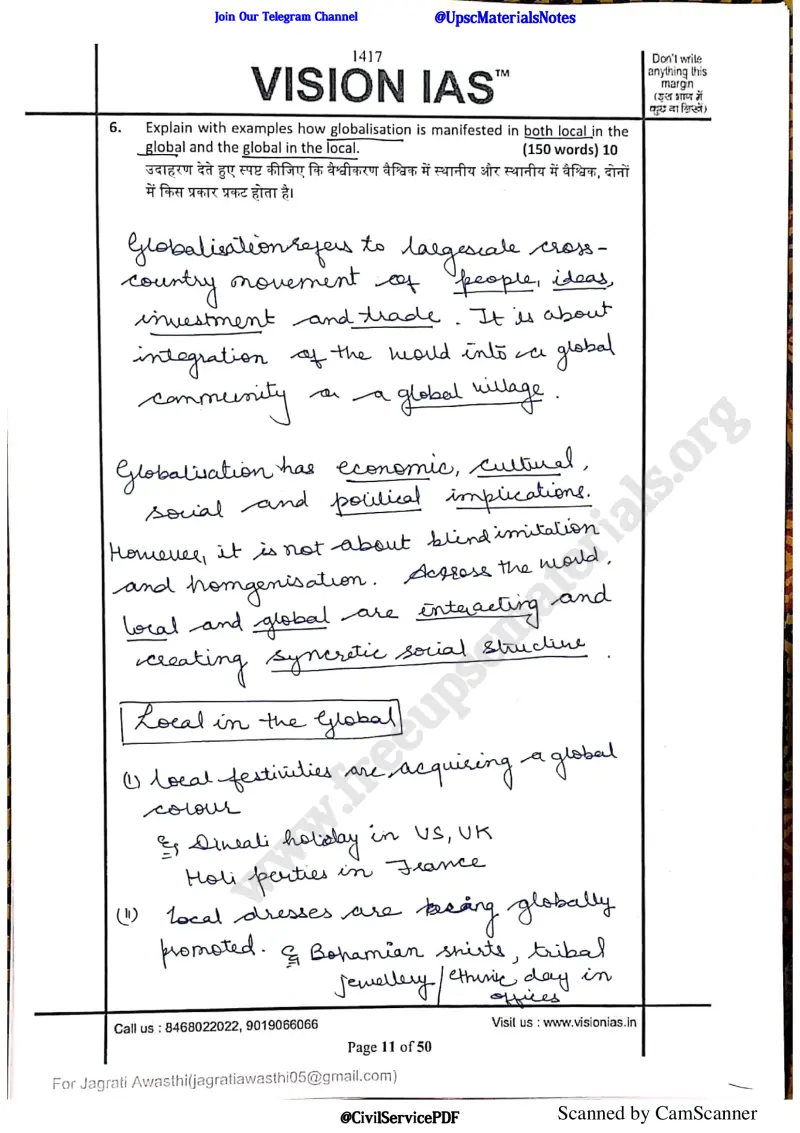 Join Our Telegram Channel @UpscMaterialsNotes
1417
VISION IAS™
Don't write
anything this
margin
(इस भाग में
कुछ ना लिखें)
6. Explain with examples how globalisation is manifested in both local in the
global and the global in the local. (150 words) 10
उदाहरण देते हुए स्पष्ट कीजिए कि वैश्वीकरण वैश्विक में स्थानीय और स्थानीय में वैश्विक, दोनों
में किस प्रकार प्रकट होता है।
Globalisation refers to largescale cross-
country movement of people, ideas,
investment and trade. It is about
integration of the world into a global
community or a global village.
Globalisation has economic, cultural,
social and political implications.
However, it is not about blind imitation
and homgenisation. Across the world,
local and global are interacting and
creating syncretic social structure.
Local in the Global
(i) local festivities are acquiring a global
colour
Eg Diwali holiday in US, UK
Holi parties in France
(ii) Local dresses are being globally
promoted. Eg Bohamian shirts, tribal
jewellery / ethnic day in
offices
Call us : 8468022022, 9019066066 Visit us : www.visionias.in
Page 11 of 50
For Jagrati Awasthi(jagratiawasthi05@gmail.com)
@CivilServicePDF Scanned by CamScanner
www.freeupscmaterials.org